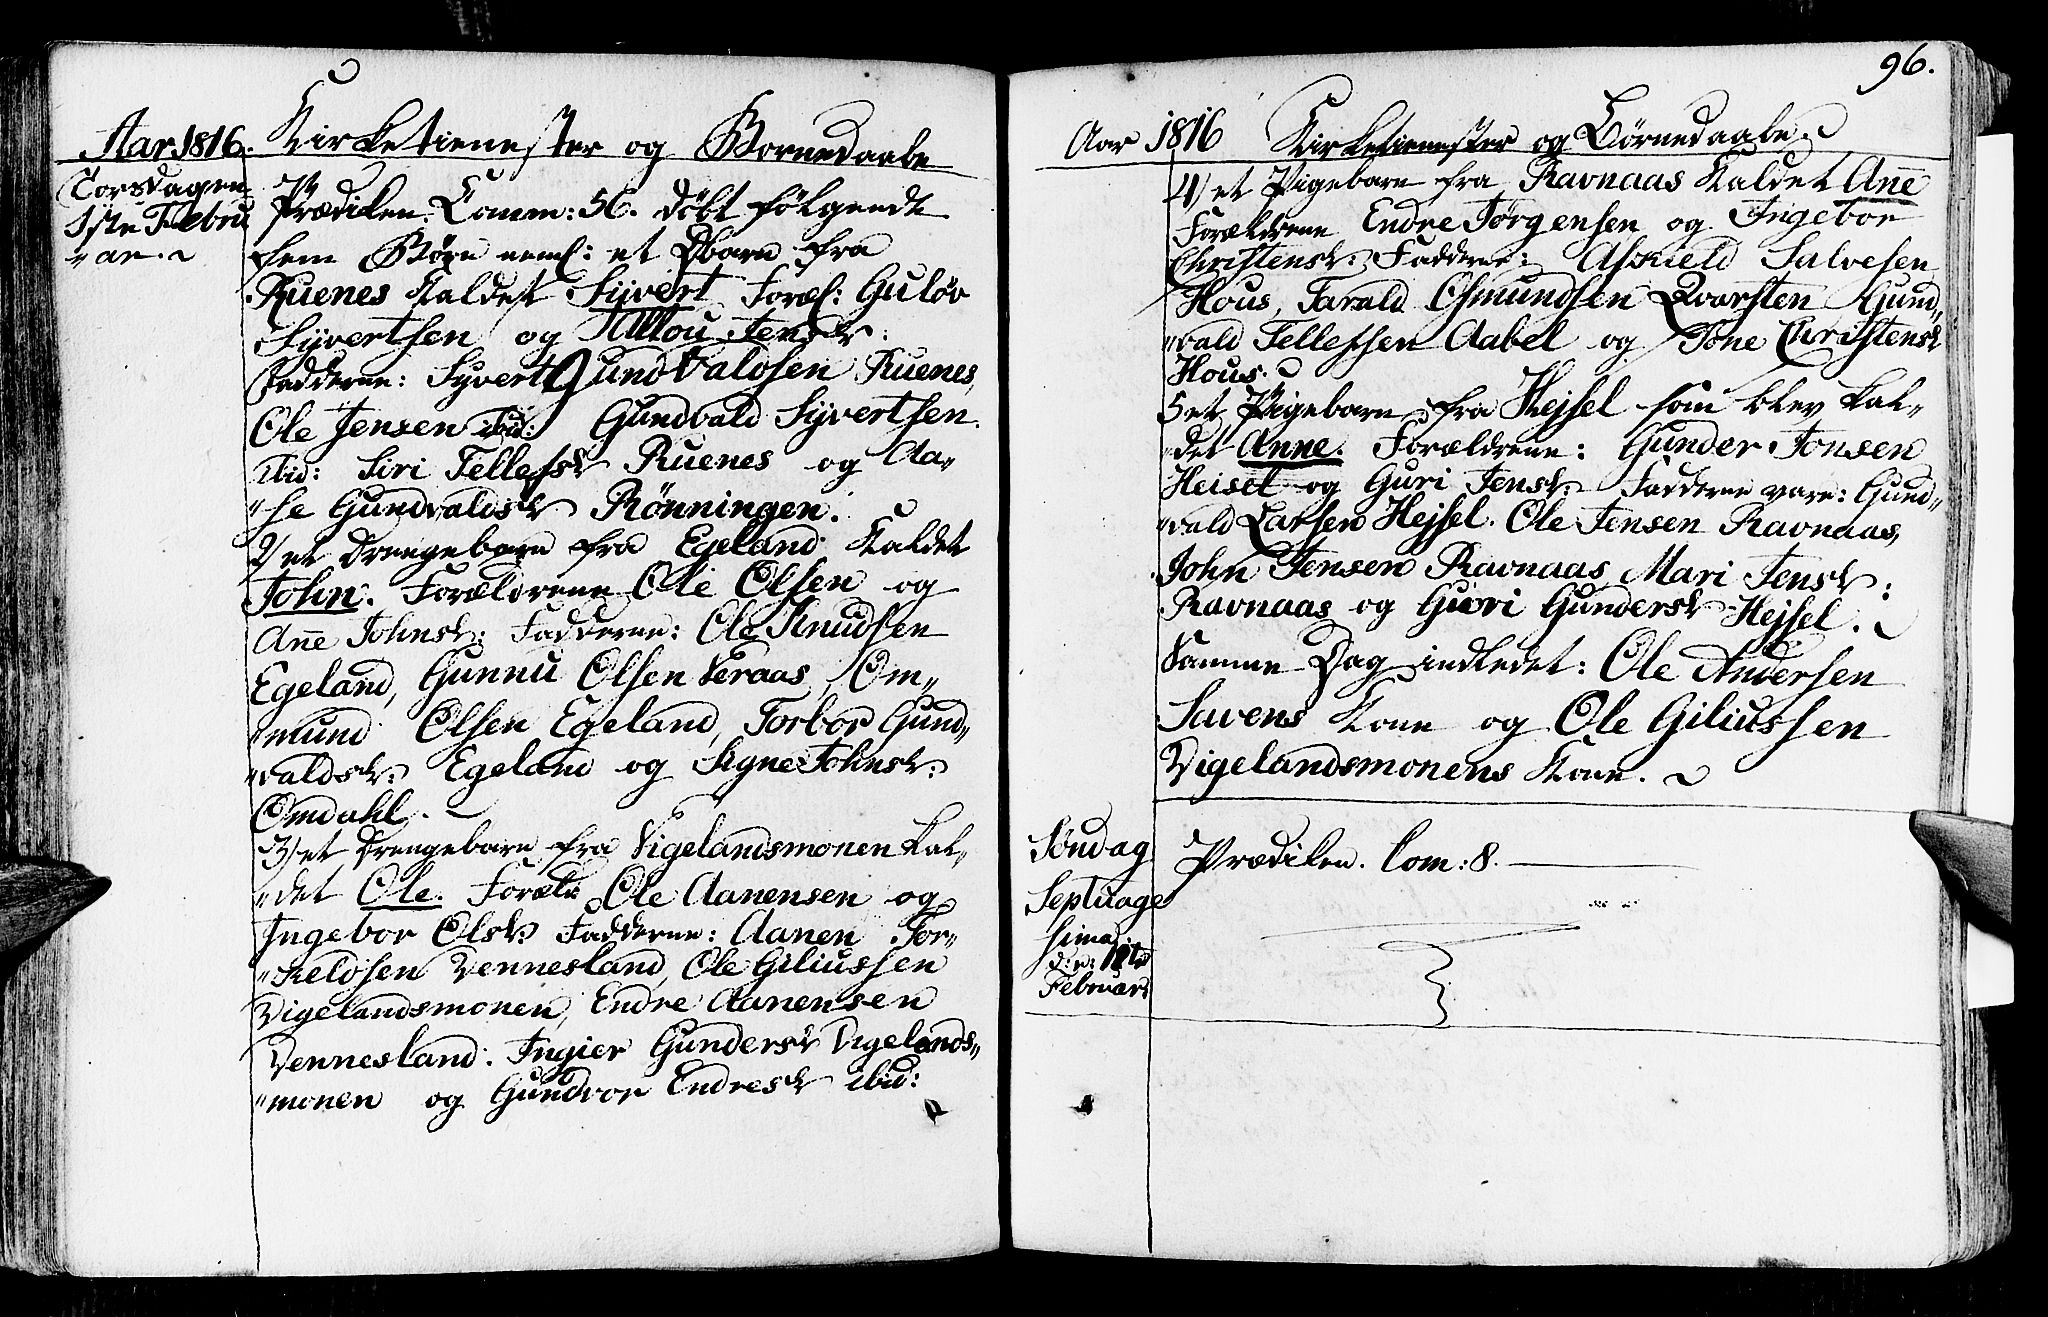 Aar 1816. Kirketienester og Bornedaabe
Torsdagen
1ste Febru
"ar.
Prædiken. Comm: 56. döbt fölgende
fem Börn neml: et Dbarn fra
Ruenes kaldet Syvert Foræl: Gulöv
Syvertsen og Jensdr:
Fadderne: Syvert Gundvaldsen Ruenes,
Ole Jensen ibid: Gundvald Syvertsen
ibid: Siri Tellefsdr Ruenes og Aa-
"se Gundvaldsdr Rönningen.
2) et Drengebarn fra Egeland kaldet
John. Forældrene Ole Olsen og
Añe Johnsdr: Fadderne: Ole Knudsen
Egeland, Gunnu Olsen Veraas, Om"
"mund Olsen Egeland, Torbor Gund"
"valdsdr: Egeland og Signe Johnsdr:
Omdahl.
3) et Drengebarn fra Vigelandsmonen kal"
"det Ole. Foræld Ole Aanensen og
Ingebor Olsdr: Fadderne: Aanen Tor"
"keldsen Vennesland, Ole Giliussen
Vigelandsmonen, Endre Aanensen
Vennesland. Ingier Gundersdr Vigelands"
"monen og Gundvor Endresdr ibid:
96.
Aar 1816 Kirketienester og Börnedaabe
4) et Pigebarn fra Ravnaas kaldet Añe
Forældrene Endre Jörgensen og Ingebor
Christensdr: Fadderne: Askield Salvesen
Hous, Tarald Osmundsen Qvarsten Gund"
"vald Tellefsen Aabel og Tone Christensdr
Hous.
5 et Pigebarn fra Hejsel som blev kal"
"det Anne. Forældrene: Gunder Jonsen
Heisel og Guri Jensdr: Fadderne vare: Gund"
"vald Larsen Hejsel. Ole Jensen Ravnaas,
John Jensen Ravnaas, Mari Jensdr:
Ravnaas og Guri Gundersdr Hejsel.
Samme Dag indledet: Ole Andersen
Savens Kone og Ole Giliussen
Vigelandsmonens Kone.
Söndag
Septuage
sima
d:n:
Februar
Prædiken. Com: 8.